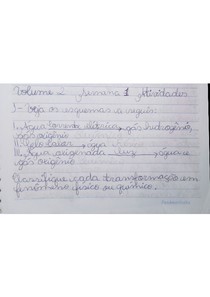 Volume 2 Semana 1 Atividades
1- Veja os esquemas a seguir:
I. Água corrente elétrica, gás hidrogênio,
gás oxigênio
II. Gelo calor, água
III. Água oxigenada luz, água e
gás oxigênio
Classifique cada transformação em
fenômeno físico ou químico.